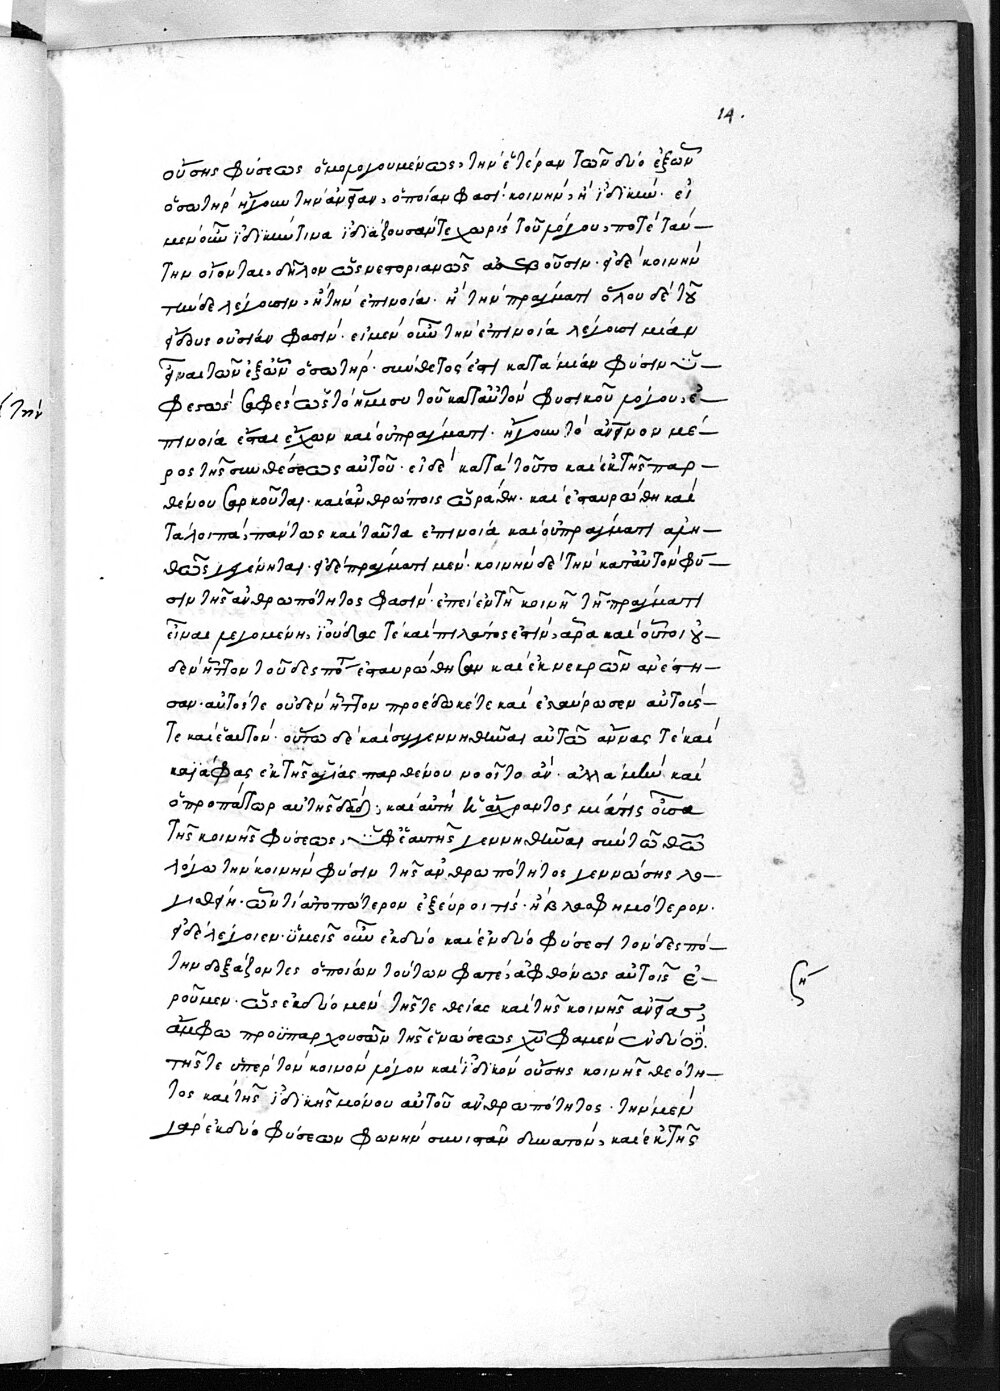 14.
οὔσης φύσεως ὁμολογουμένως, τὴν ἑτέραν τῶν δύο ἐξ ὧν
ὁ σωτὴρ ἤγουν τὴν ἀνῖναν, ὁποίαν φασί· κοινὴν, ἢ ἰδικήν· εἰ
μὲν οὖν ἰδικήν τινα ἰδιάζουσάν τε χωρὶς τοῦ λόγου, ποτὲ ταύ-
την οἴονται, δῆλον ὡς νεστοριανῶς ἀσεβοῦσιν· εἰ δὲ κοινὴν
πως δὲ λέγουσιν, ἢ τὴν ἐπινοία· ἢ τὴν πράγματι ὅλου δὲ τοῦ
εἴδους οὐσίαν φασίν· εἰ μὲν οὖν τὴν ἐπινοία λέγουσι μίαν
εἶναι τῶν ἐξ ὧν ὁ σωτήρ· σύνθετος ἐστὶ κατὰ μίαν φύσιν
φετως σαφὲς ὡς τὸ ἥμισυ τοῦ κατ αὐτὸν φυσικοῦ λόγου, ἐ-
πινοία ἔσται ἔχων καὶ οὐ πράγματι· ἤγουν τὸ ἀνῖνον μέ-
ρος τῆς συνθέσεως αὐτοῦ· εἰ δὲ κατὰ τοῦτο καὶ ἐκ τῆς παρ-
θένου σαρκοῦται· καὶ ἀνθρώποις ὡράθη· καὶ ἐσταυρώθη καὶ
τὰ λοιπὰ, πάντως καὶ ταῦτα ἐπινοία καὶ οὐ πράγματι ἀλη-
θῶς γεγένηται· εἰ δὲ πράγματι μὲν· κοινὴν δὲ τὴν κατ αὐτὸν φύ-
σιν τῆς ἀνθρωπότητος φασίν· ἐπεὶ ἐν τῆ κοινῆ τῆ πράγματι
εἶναι λεγομένη, ἰούδας τε καὶ πιλάτος ἐστίν, ἄρα καὶ οὗτοι οὐ-
δὲν ἧττον τοῦ δεσπό ἐσταυρώθησαν καὶ ἐκ νεκρῶν ἀνέστη-
σαν· αὐτός τε οὐδὲν ἧττον προέδωκέ τε καὶ ἐσταύρωσεν αὐτούς
τε καὶ ἑαυτόν· οὕτω δὲ καὶ συγγεννηθῆναι αὐτῶ ἄννας τε καὶ
καϊάφας ἐκ τῆς ἁγίας παρθένου νοοῖτο ἄν· ἀλλὰ μὴν καὶ
ὁ προπάτωρ αὐτῆς δαδ, καὶ αὐτὴ ἡ ἄχραντος μία τις οὖσα
τῆς κοινῆς φύσεως, ἐξ ἑαυτῆς γεννηθῆναι σὺν τῶ θῶ
λόγω τὴν κοινὴν φύσιν τῆς ἀνθρωπότητος γεννώσης λο-
γισθῆ· ὧν τί ἀτοπώτερον ἐξεύροι τίς· ἢ βλασφημότερον·
εἰ δὲ λέγοιεν· ὑμεῖς οὖν ἐκ δύο καὶ ἐν δύο φύσεσι τὸν δεσπό-
την δοξάζοντες ὁποίων τούτων φατέ, ἀφθόνως αὐτοῖς ἐ-
ροῦμεν· ὡς ἐκ δύο μὲν τῆς τε θείας καὶ τῆς κοινῆς
ἄμφω προϋπαρχουσῶν τῆς ἑνώσεως χν φαμὲν ἐν δύο
τῆς τε ὑπὲρ τὸν κοινὸν λόγον καὶ ἰδικὸν οὔσης κοινῆς θεότη-
τος καὶ τῆς ἰδικῆς μόνου αὐτοῦ ἀνθρωπότητος· τὴν μὲν
γὰρ ἐκ δύο φύσεων φωνὴν συνιστᾶν δυνατόν, καὶ ἐκ τῆς